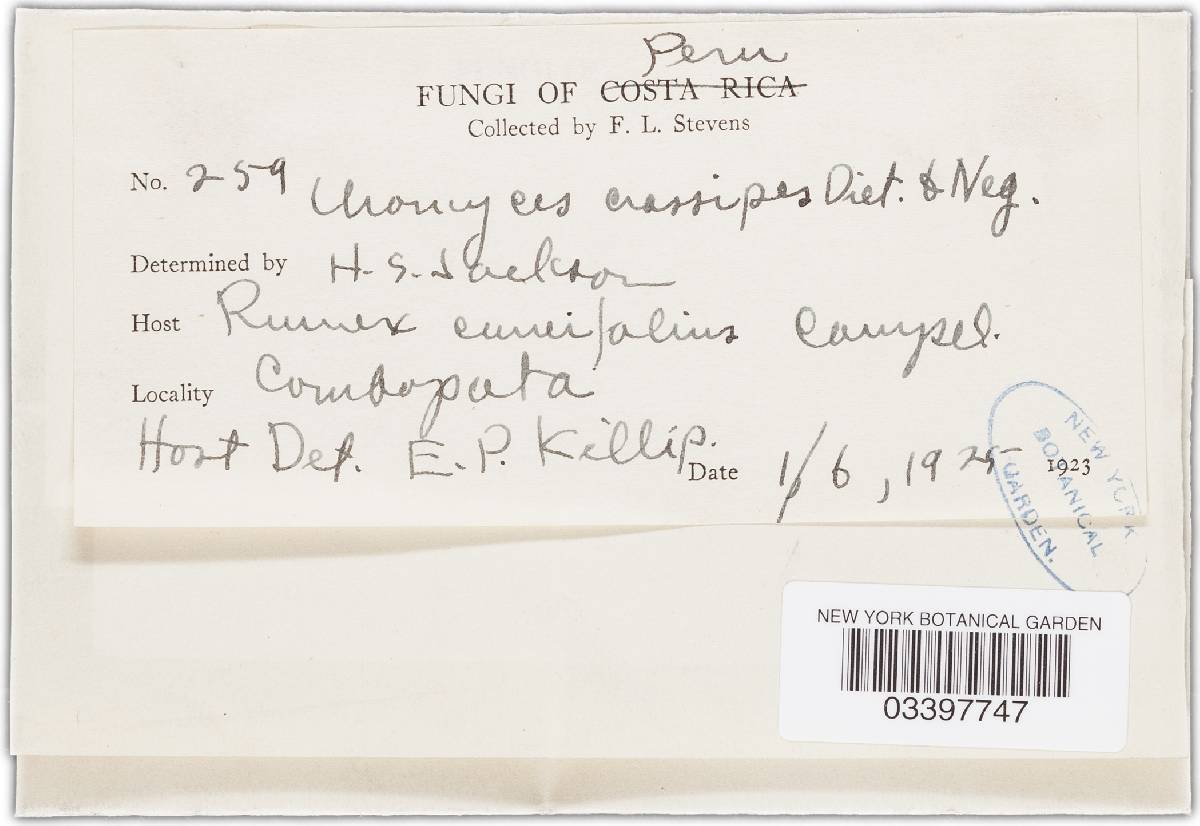 Peru
FUNGI OF COSTA RICA
Collected by F. L. Stevens
No. 259 Uromyces crassipes Diet. & Neg.
Determined by H. S. Jackson
Host Rumex cuneifolius Campd.
Locality Combapata
Host Det. E. P. Killip.
Date 1/6, 1925 1923
NEW YORK
BOTANICAL
GARDEN.
NEW YORK BOTANICAL GARDEN
03397747